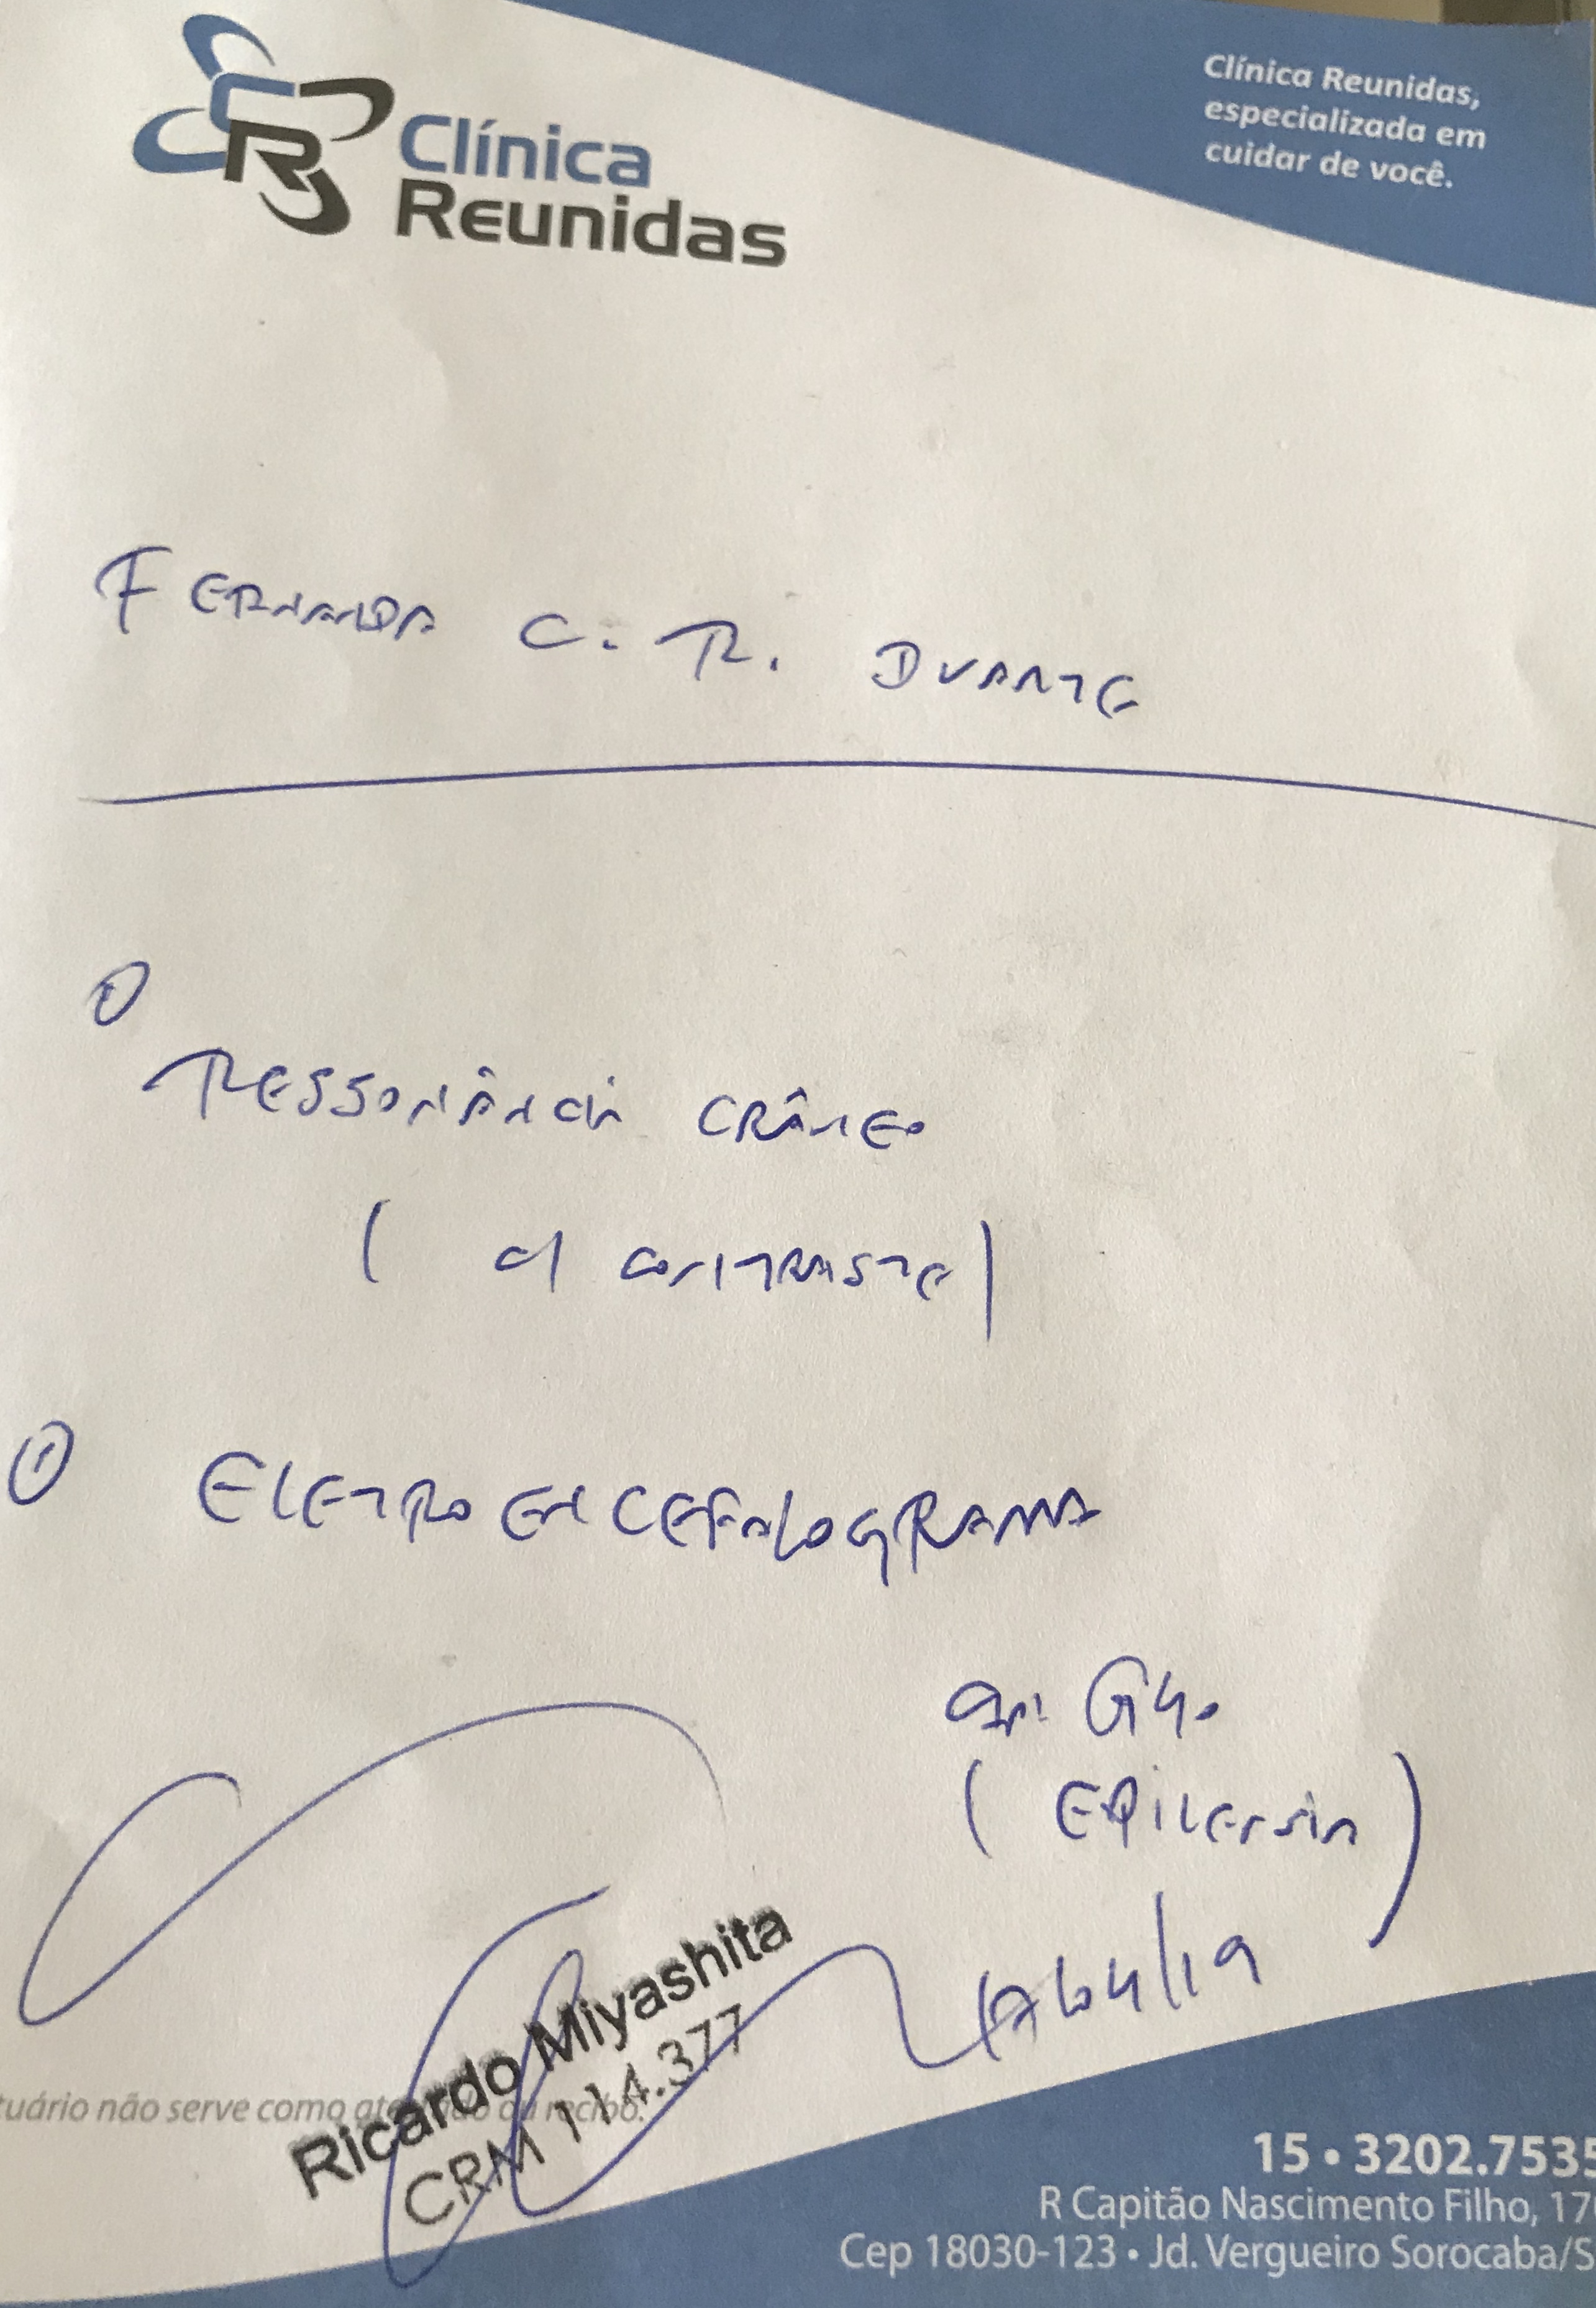 Clínica
Reunidas
Clínica Reunidas,
especializada em
cuidar de você.
FERNANDA C. R. DUARTE
RESSONÂNCIA CRÂNEO
( c/ CONTRASTE)
ELETROENCEFALOGRAMA
G40
( EPILEPSIA )
Ricardo Miyashita
CRM 114.377
tuário não serve como ate do ou recibo.
15 • 3202.7535
R Capitão Nascimento Filho, 17
Cep 18030-123 • Jd. Vergueiro Sorocaba/S